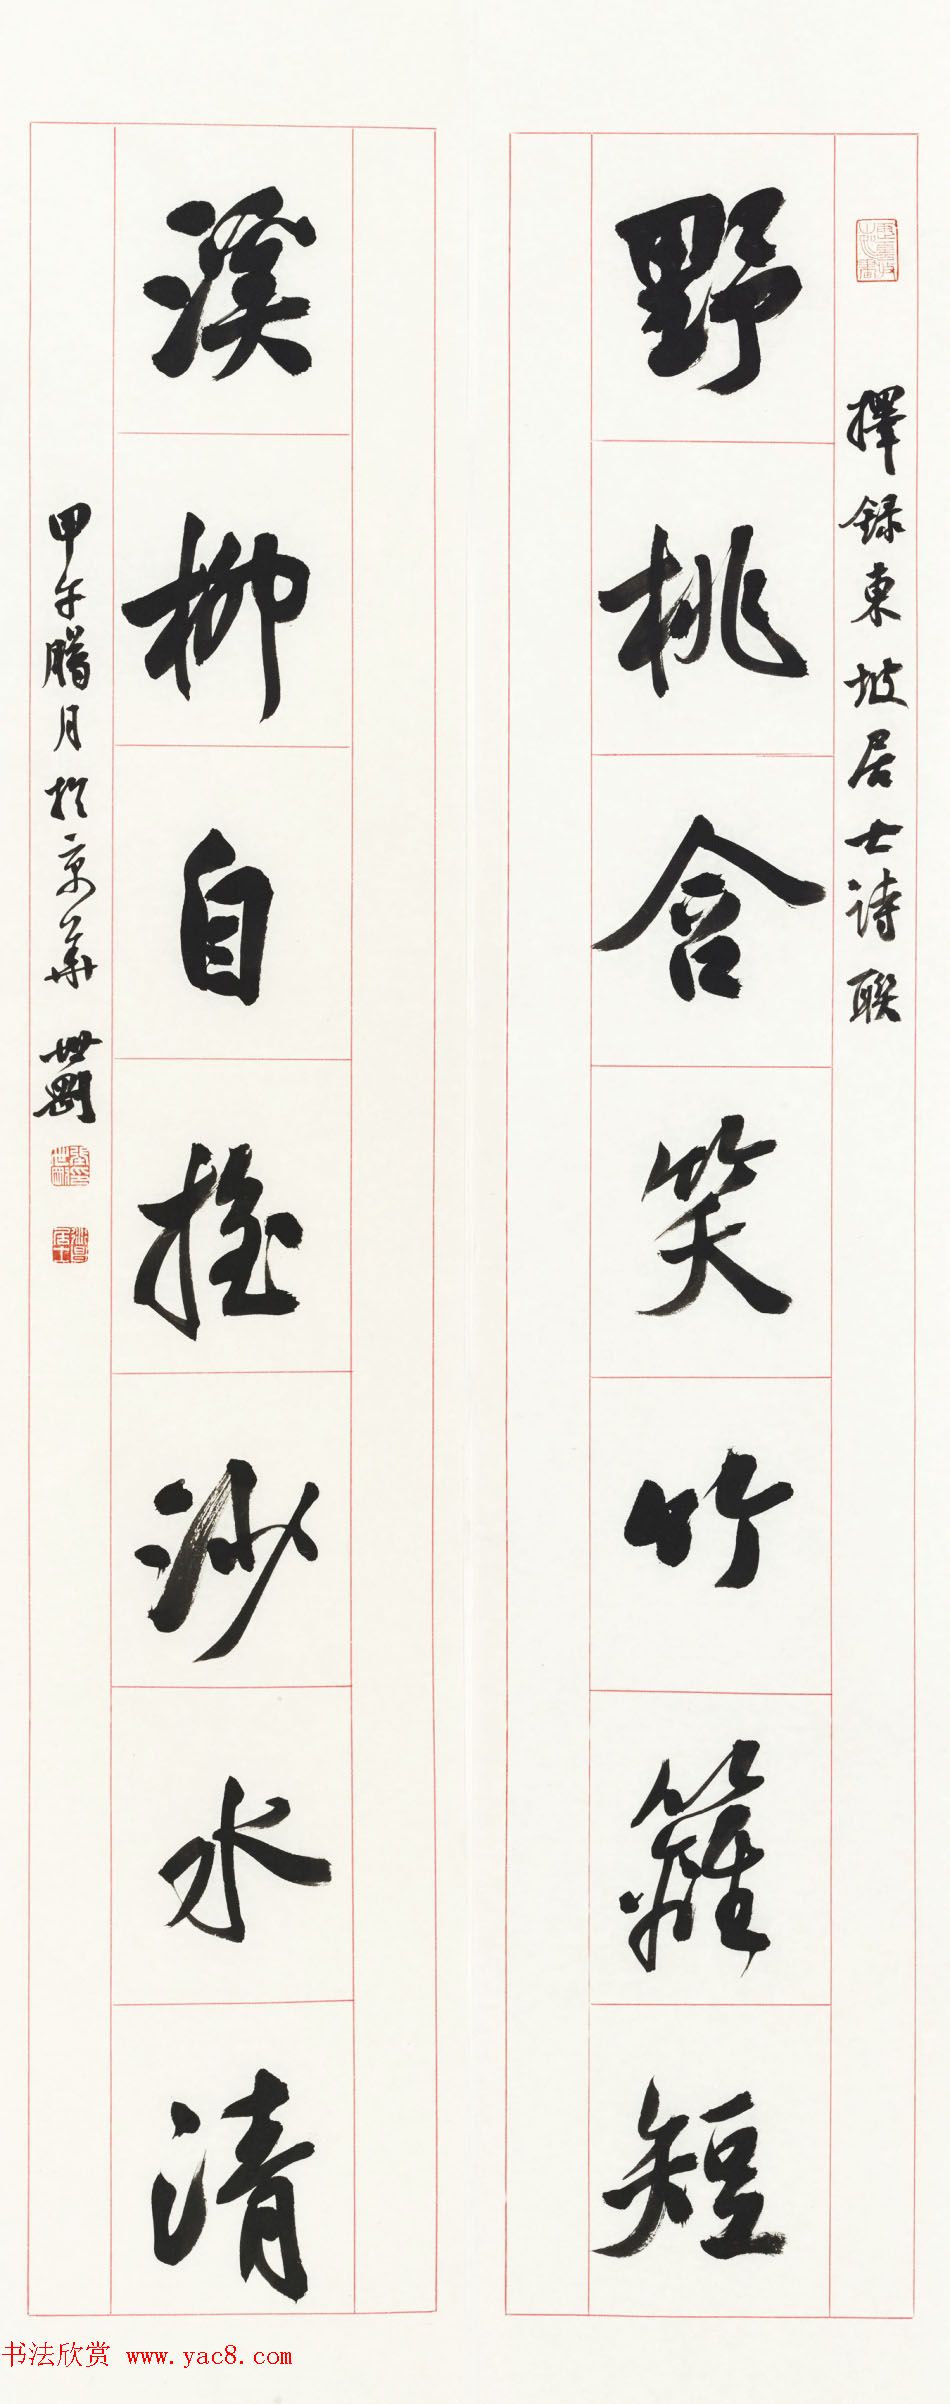 擇録東坡居士詩聯
野桃含笑竹籬短
溪柳自摇沙水清
甲午臘月於京華 世剛
书法欣赏 www.yac8.com